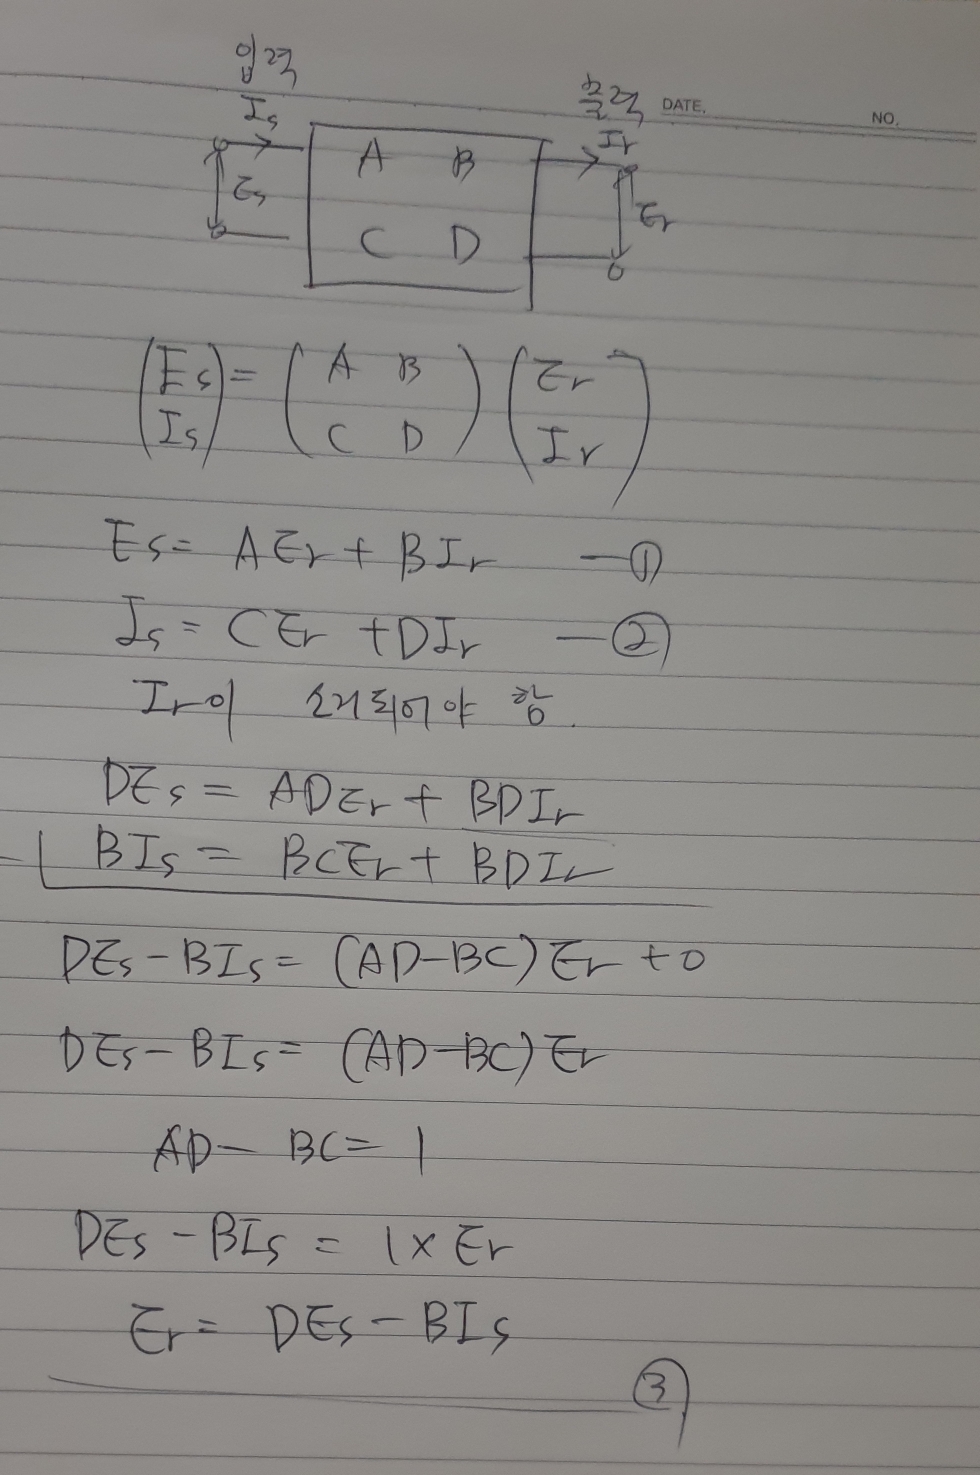 입력
출력
DATE.
NO.
Is
Ir
A B
Es
Er
C D
(Es Is) = (A B C D) (Er Ir)
Es = AEr + BIr —①
Is = CEr + DIr —②
Ir이 소거되어야 함.
DEs = ADEr + BDIr
- BIs = BCEr + BDIr
DEs - BIs = (AD-BC)Er + 0
DEs - BIs = (AD-BC)Er
AD - BC = 1
DEs - BIs = 1 x Er
Er = DEs - BIs
③